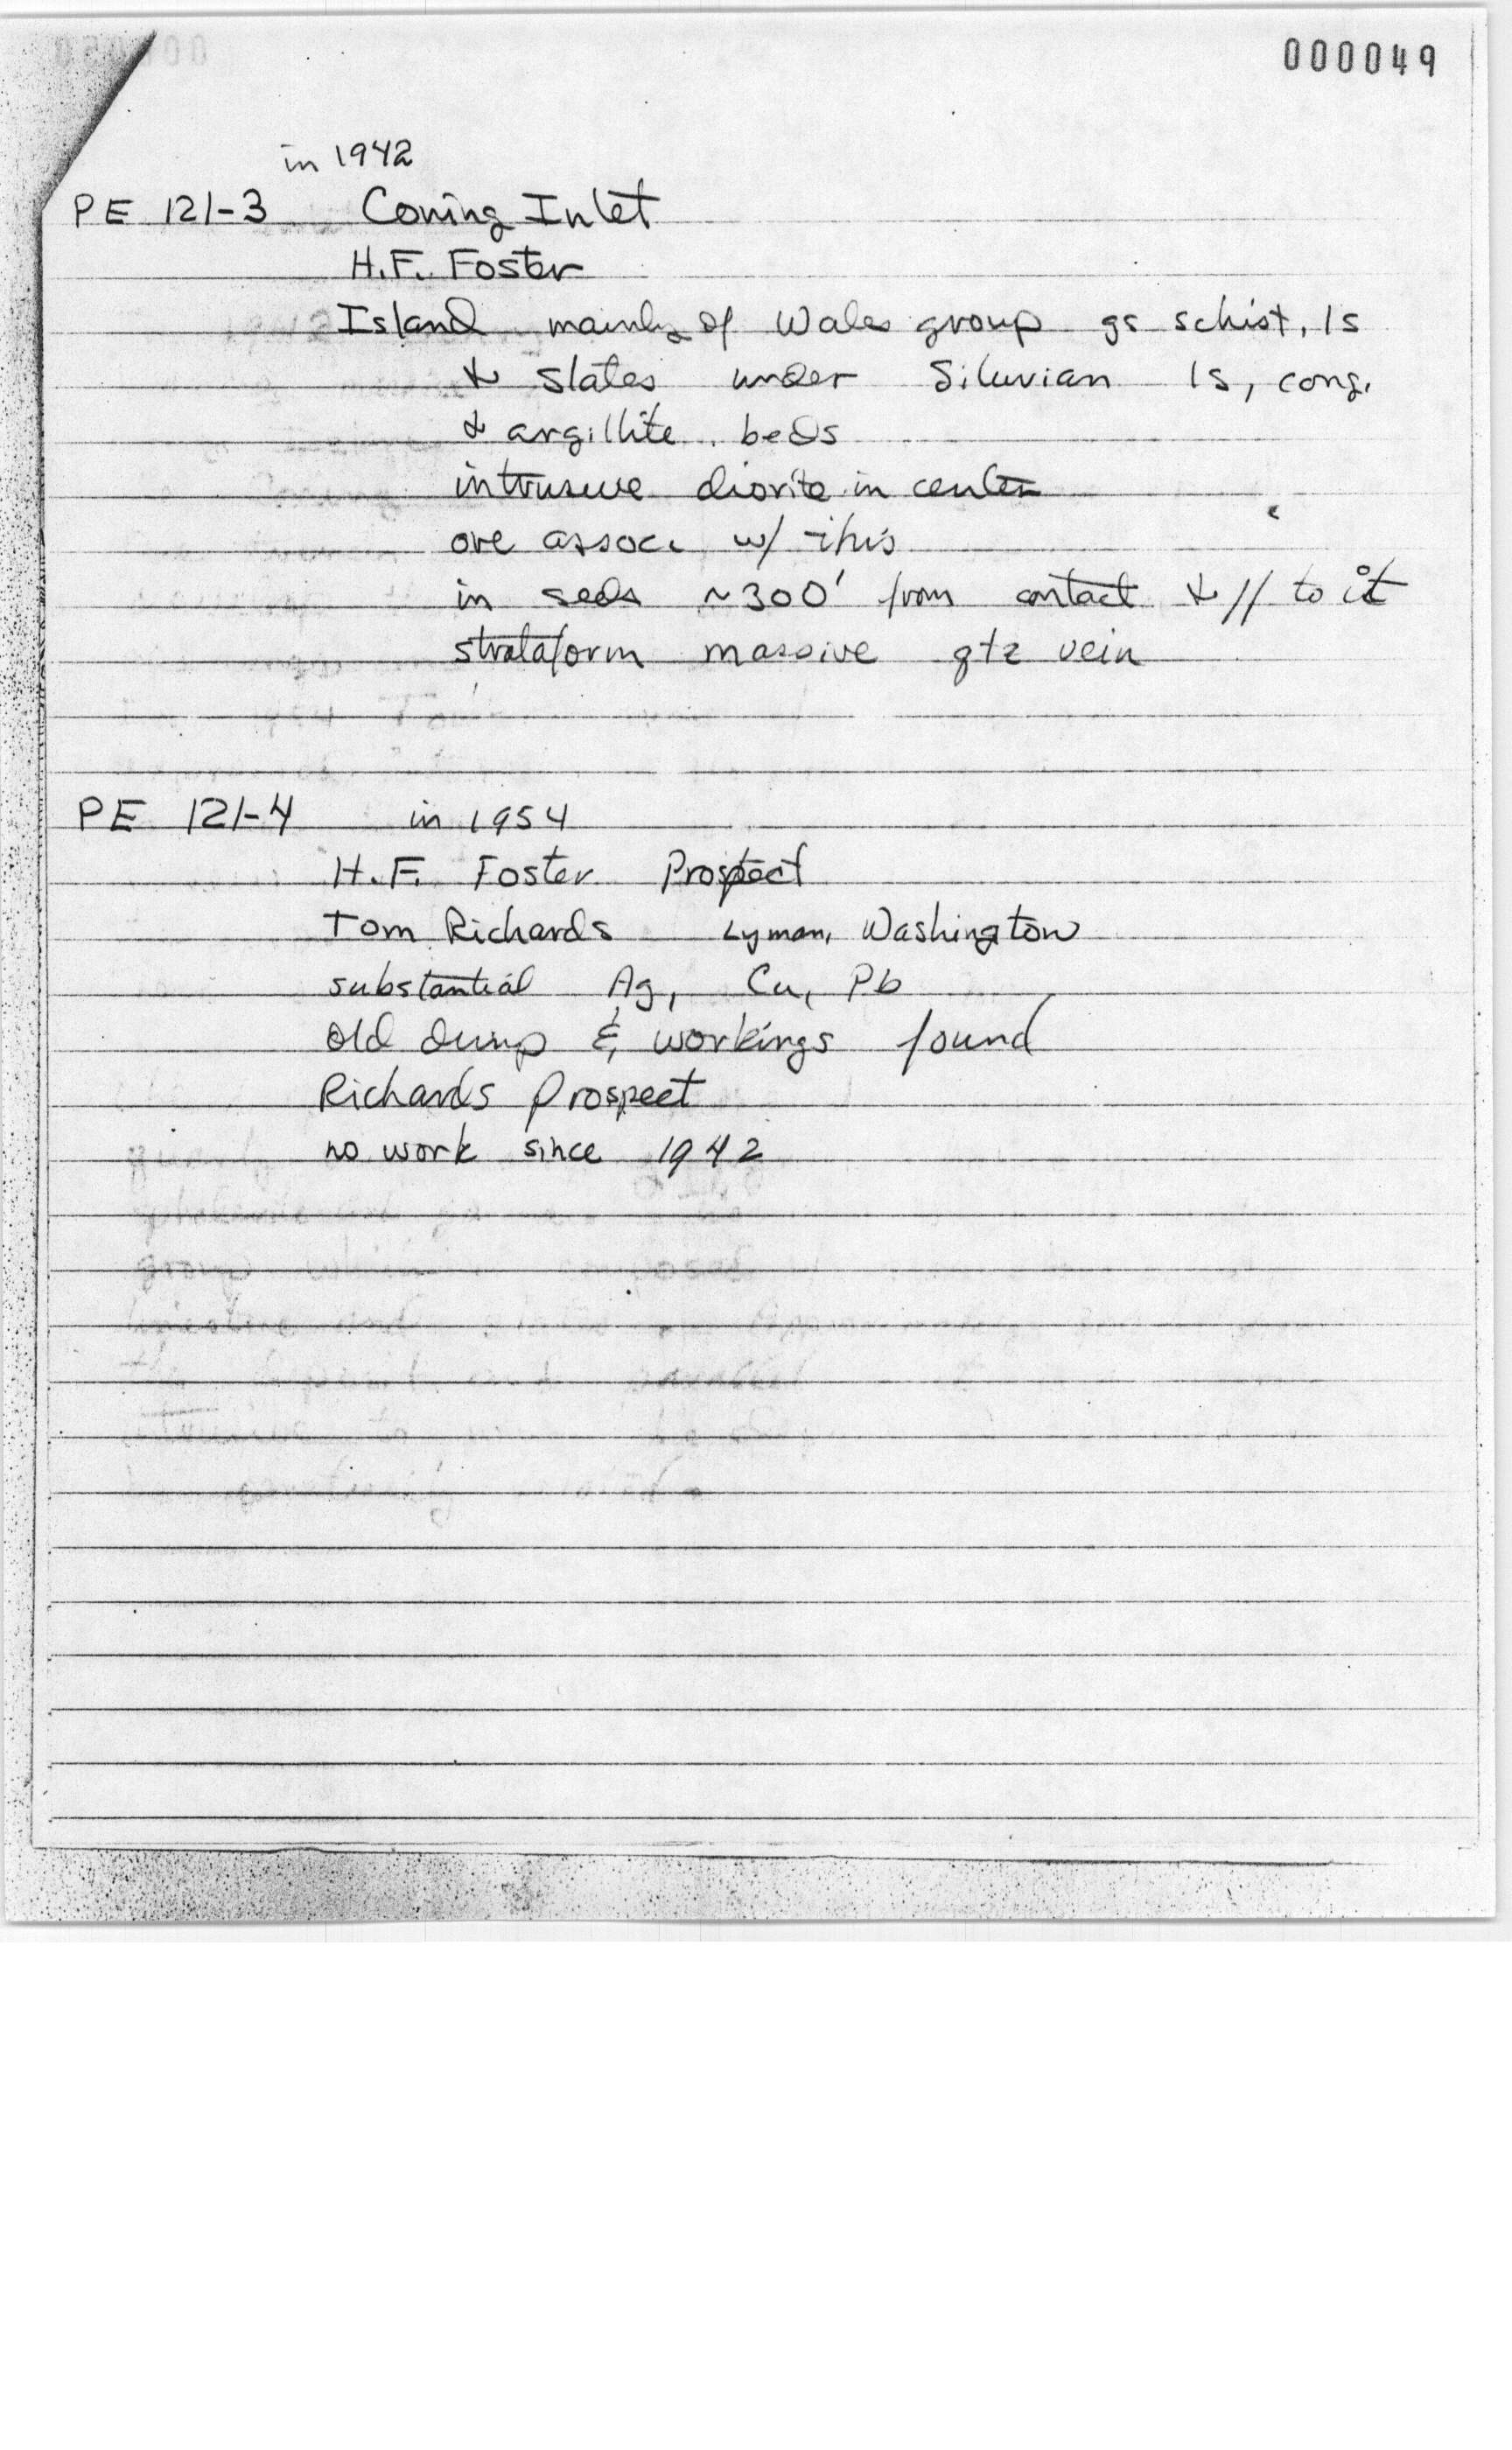 000049
in 1942
PE 121-3 Coning Inlet
H.F. Foster
Island mainly of Wales group gs schist, ls
& slates under Silurian ls, cong.
& argillite beds
intrusive diorite in center
ore assoc. w/ this
in seds ~300' from contact & // to it
strataform massive qtz vein
PE 121-4 in 1954
H.F. Foster Prospect
Tom Richards Lyman, Washington
substantial Ag, Cu, Pb
old dump & workings found
Richards Prospect
no work since 1942